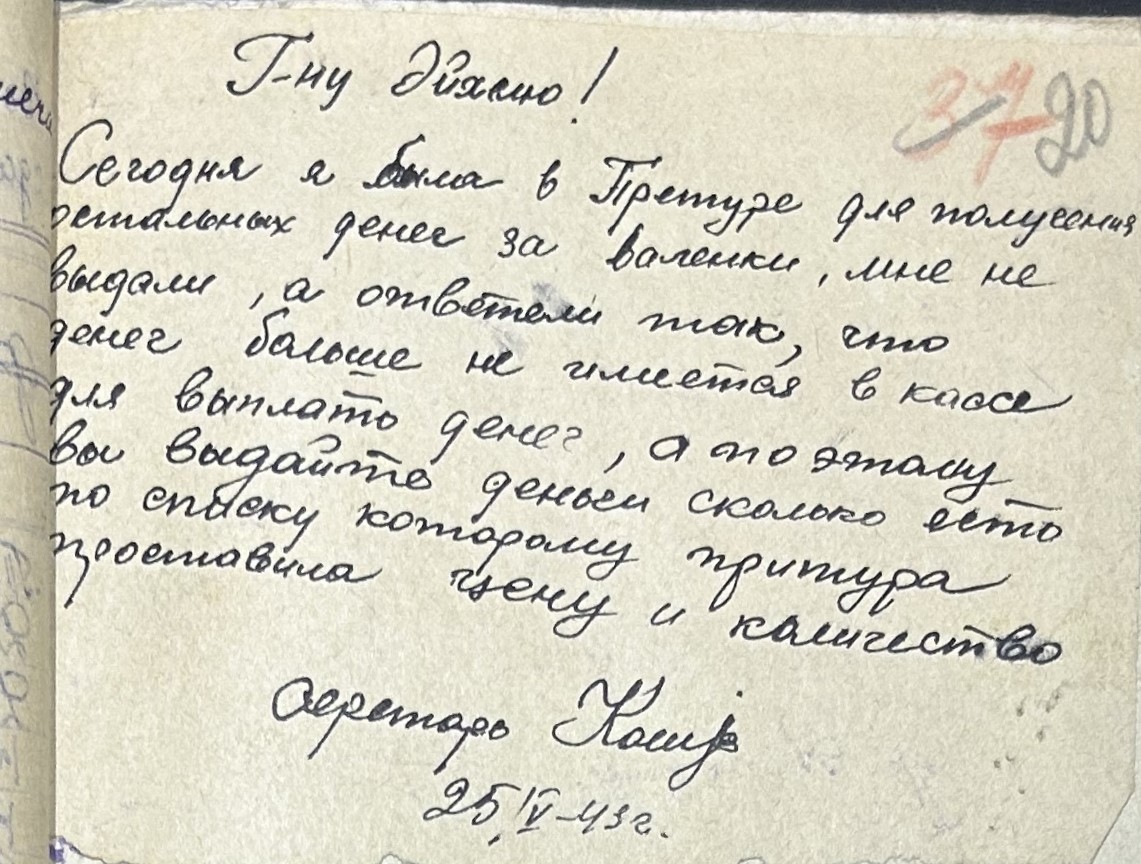 Г-ну Эйхлю!
20
Сегодня я была в Претуре для получения
остальных денег за валенки, мне не
выдали, а ответели так, что
денег больше не имеется в кассе
для выплаты денег, а по этому
вы выдайте деньги сколько есть
по списку которому притура
проставила цену и количество
Серетарь
25/V-43 г.